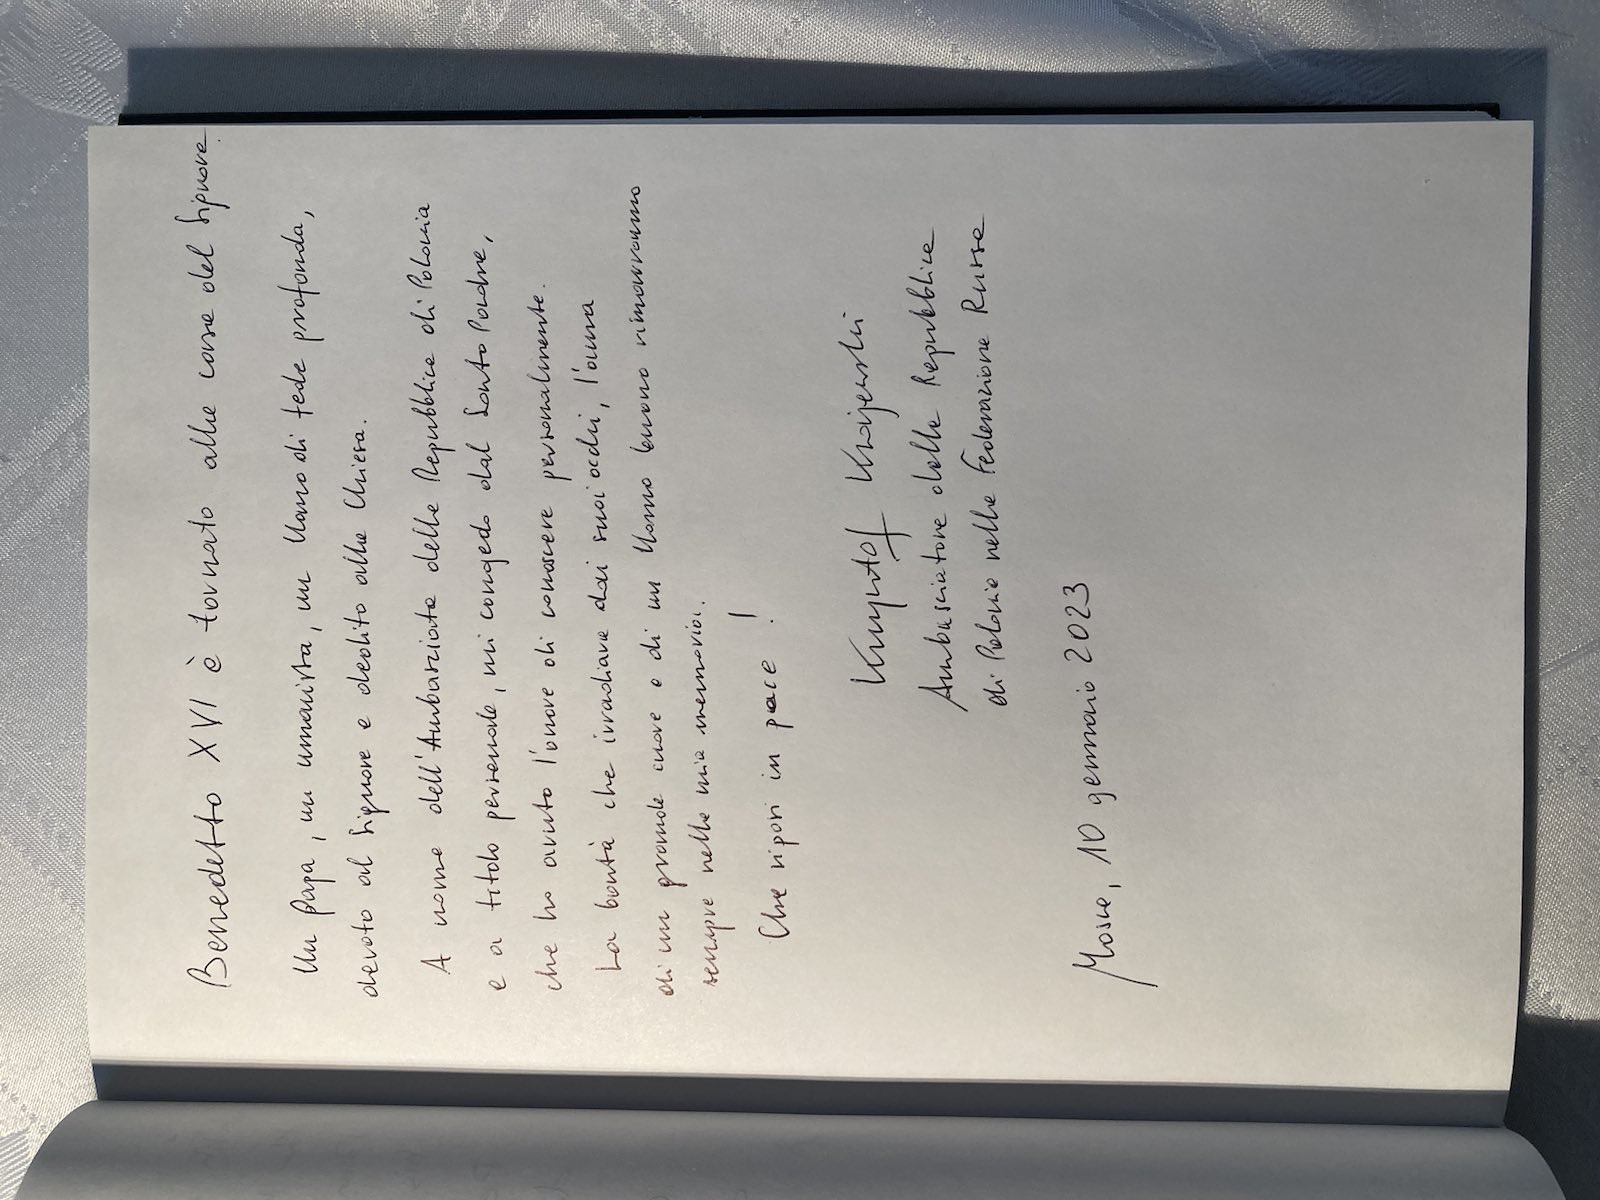 Benedetto XVI è tornato alla casa del Signore.
Un Papa, un umanista, un Uomo di fede profonda,
devoto al Signore e dedito alla Chiesa.
A nome dell'Ambasciata della Repubblica di Polonia
e a titolo personale, mi congedo dal Santo Padre,
che ho avuto l'onore di conoscere personalmente.
La bontà che irradiava dai suoi occhi, l'aura
di un grande cuore e di un Uomo buono rimarranno
sempre nella mia memoria.
Che riposi in pace!
Krzysztof Krajewski
Ambasciatore della Repubblica
di Polonia nella Federazione Russa
Mosca, 10 gennaio 2023